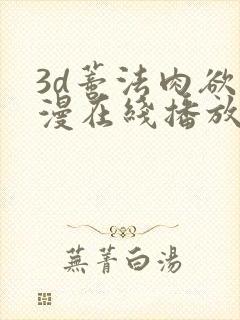 3d蒈法肉欲
漫在綫播放
蕪菁白湯